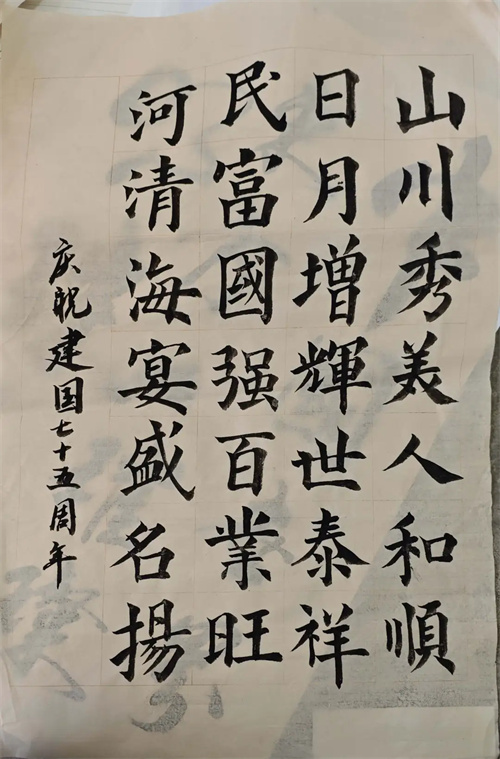 山川秀美人和順
日月增輝世泰祥
民富國强百業旺
河清海宴盛名揚
庆祝建国七十五周年